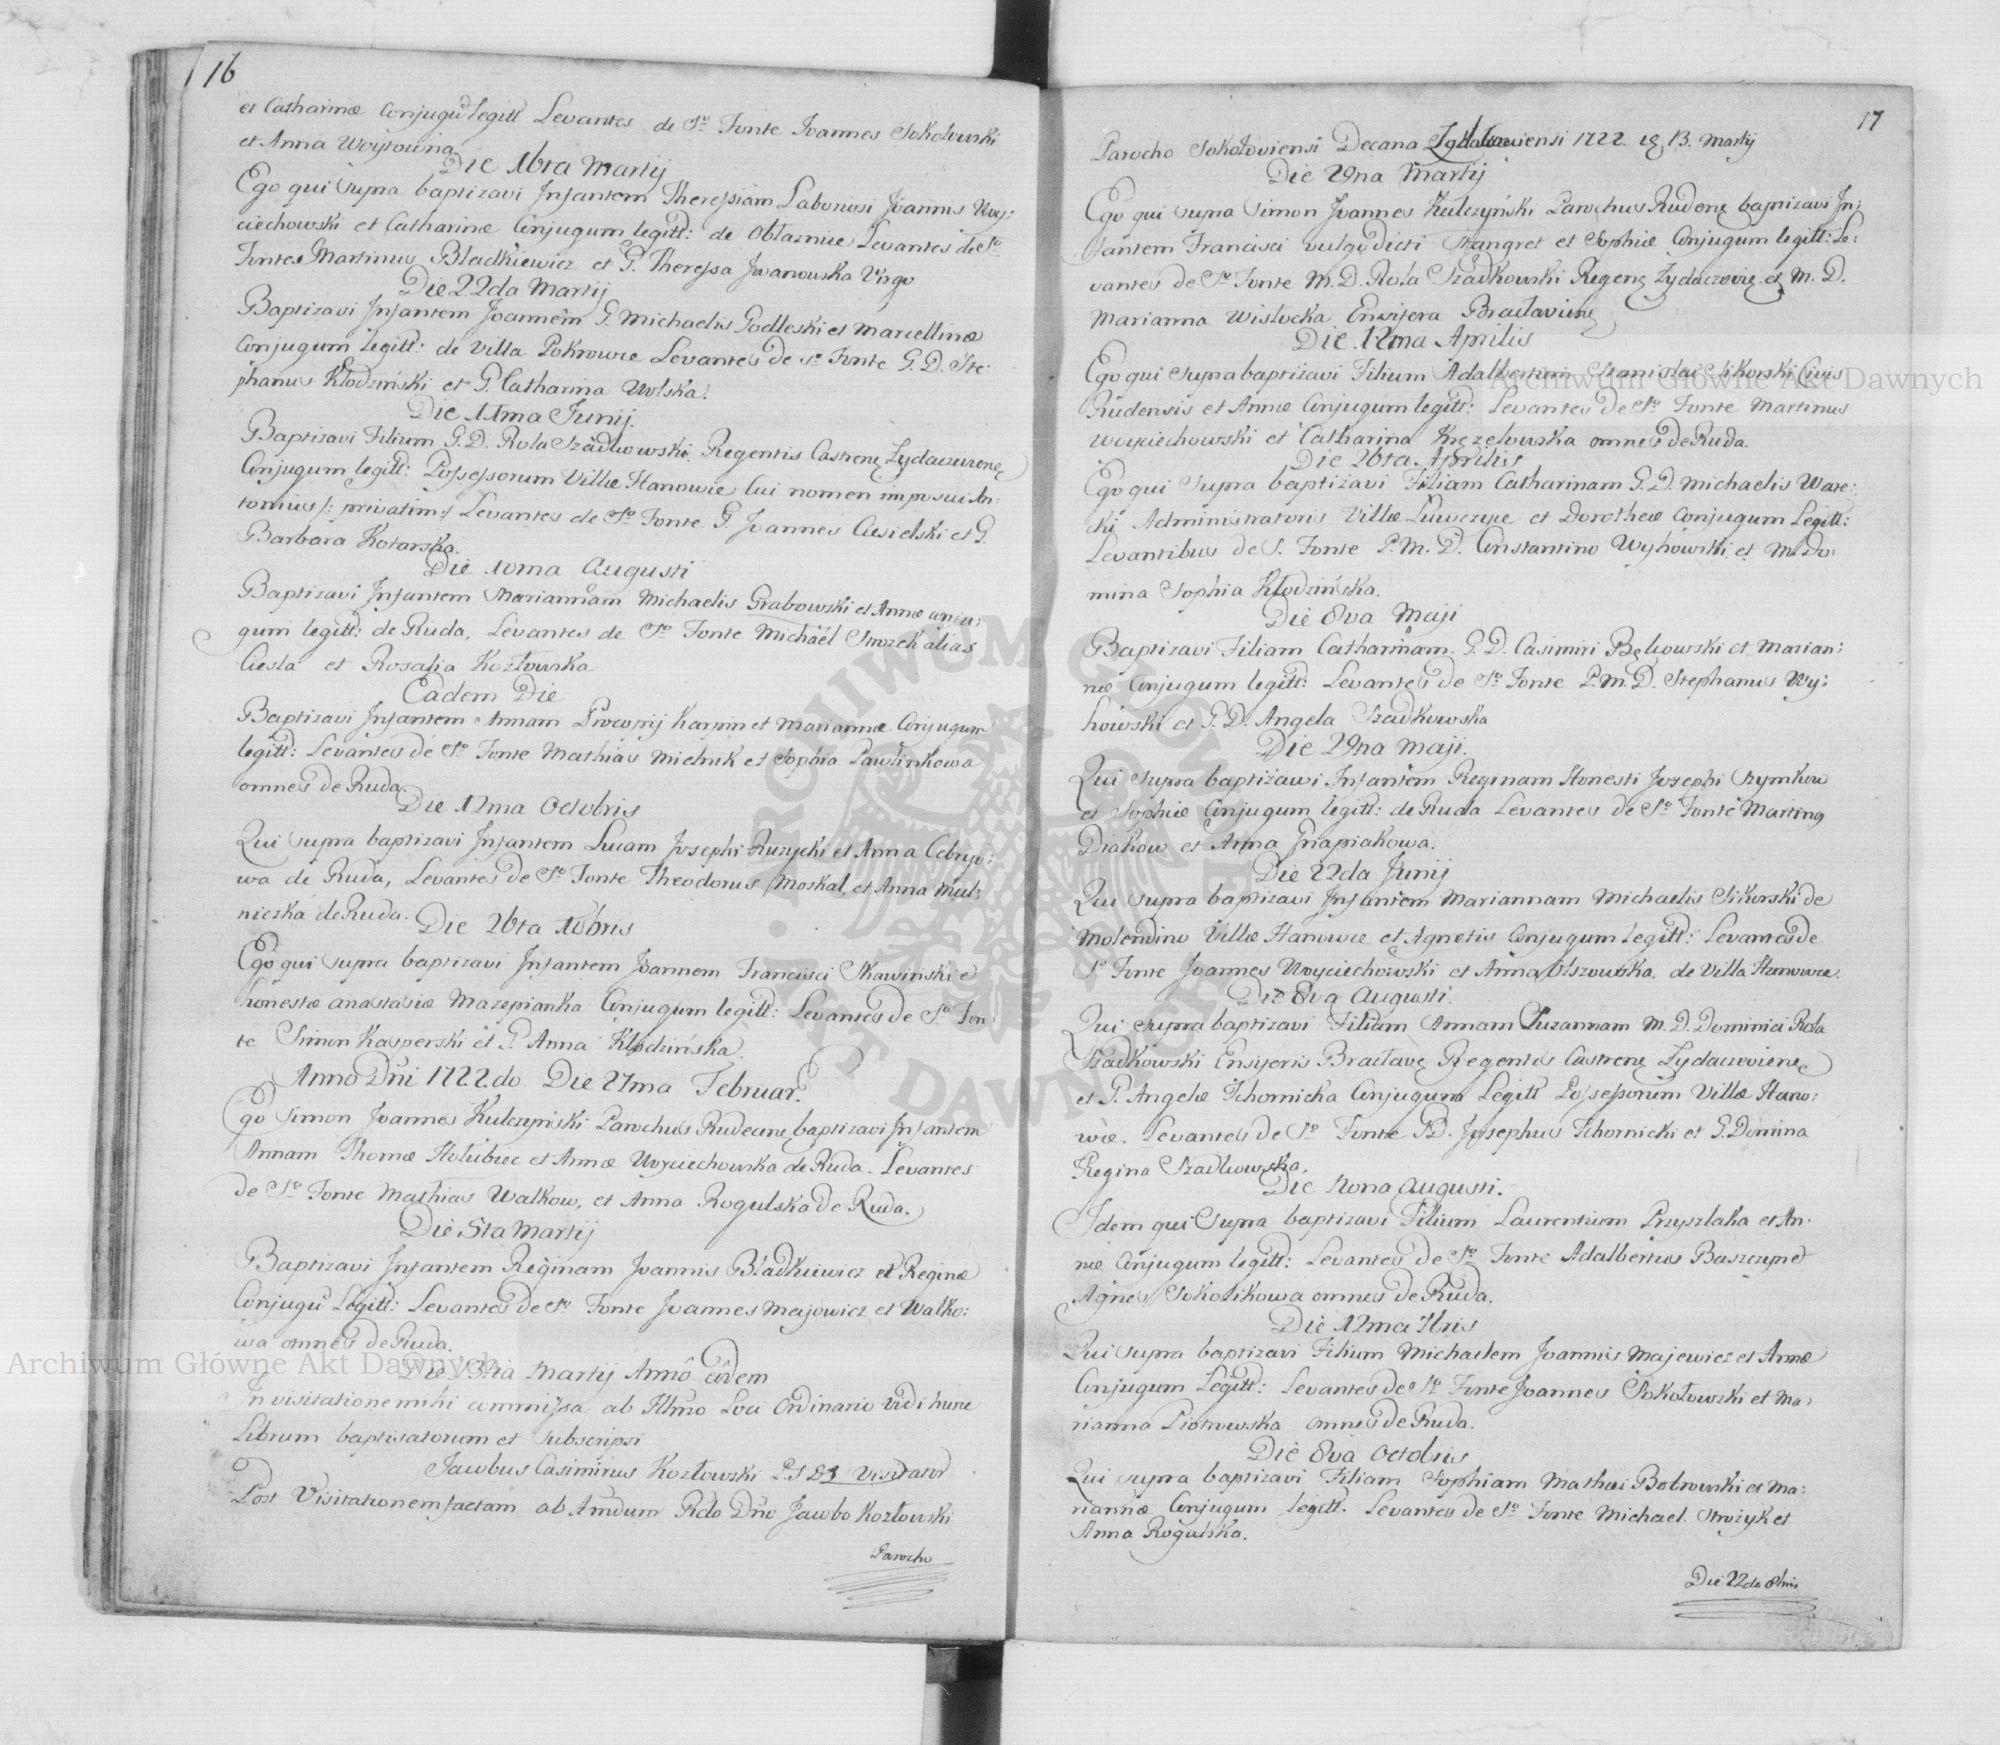 16
et Catharinæ Conjugũ legitt Levantes de S: Fonte Joannes Sokołowski
et Anna Woytowna
Die 16ta Martij
Ego qui supra baptizavi Infantem Theressiam Laboriosi Joannis Woy:
ciechowski et Catharinæ Conjugum legitt: de Obłaznice Levantes de So
Fonte Martinus Bladkiewicz et G. Theressa Jwanowska Virgo
Die 22da Martij
Baptizavi Infantem Joannem G. Michaelis Godleski et Marcellinæ
Conjugum legitt: de Villa Pokrowce Levantes de So Fonte G. D. Ste:
phanus Kłodziński et G. Catharina Wolska.
Die 11ma Junij.
Baptizavi Filium G. D. Rola Szadkowski Regentis Castrenę Zydaczovienę
Conjugum legitt: Possessorum Villæ Hanowce Cui nomen imposui An:
tonius /: privatim :/ Levantes de So Fonte G. Joannes Ciesielski et G.
Barbara Kotarska.
Die 10ma Augusti
Baptizavi Infantem Mariannam Michaelis Grabowski et Annæ Conju:
gum legitt: de Ruda, Levantes de So Fonte Michaël Strozek alias
Ciesla et Rosalia Kozłowska
Eadem Die
Baptizavi Infantem Annam Procopij Karpin et Mariannæ Conjugum
legitt: Levantes de So Fonte Mathias Mielnik et Sophia Pawlinkowa
omnes de Ruda.
Die 12ma Octobris
Qui supra baptizavi Infantem Lucam Josephi Ruzycki et Anna Cebryo:
wa de Ruda, Levantes de So Fonte Theodorus Moskal et Anna Miel:
niczka de Ruda.
Die 26ta 10bris
Ego qui supra baptizavi Infantem Joannem Francisci Skawinski e
honestæ Anastasiæ Mazepianka Conjugum legitt: Levantes de So Fon:
te Simon Kasperski et G. Anna Kłodzińska.
Anno Dñi 1722do Die 27ma Februar.
Ego Simon Joannes Kulczyński Parochus Rudecenę baptizavi Infantem
Annam Thomæ Hołubiec et Annæ Woyciechowska de Ruda. Levantes
de So Fonte Mathias Walkow, et Anna Rogulska de Ruda.
Die 5ta Martij
Baptizavi Infantem Reginam Joannis Bladkiewicz et Reginæ
Conjugũ Legitt: Levantes de So Fonte Joannes Majowicz et Walko:
wa omnes de Ruda.
Die 13tia Martij Anno eodem
In visitatione mihi commissa ab Illmo Loci Ordinario vidi hunc
Librum baptisatorum et subscripsi
Jacobus Casimirus Kozłowski Visitator
Post Visitationem factam ab Amdum Rdo Dño Jacobo Kozłowski
Parocho
17
Parocho Sokołoviensi Decano 1722 13. Martij
Die 29na Martij
Ego qui supra Simon Joannes Kulczyński Parochus Rudenę baptizavi In:
fantem Francisci vulgo dicti Stangret et Sophiæ Conjugum legitt: Le:
vantes de So Fonte M. D. Rola Szadkowski Regenę Zydaczovię et M. D.
Marianna Wisłocka Ensifera Bracłavienę
Die 12ma Aprilis
Ego qui supra baptizavi Filium Adalbertum Stanislai Sikorski Civis
Rudensis et Annæ Conjugum legitt: Levantes de So Fonte Martinus
Woyciechowski et Catharina Kęzelowska omnes de Ruda.
Die 26ta Aprilis
Ego qui supra baptizavi Filiam Catharinam G. D. Michaelis Ware:
cki Administratoris Villæ Liwczyce et Dorotheæ Conjugum Legitt:
Levantibus de S. Fonte P. M. D. Constantino Wyhowski et M. Do:
mina Sophia Kłodzińska.
Die 8va Maji
Baptizavi Filiam Catharinam G. D. Casimiri Bękowski et Marian:
næ Conjugum legitt: Levantes de So Fonte P. M. D. Stephanus Wy:
howski et G. D. Angela Szadkowska
Die 29na Maji.
Qui supra baptizawi Infantem Reginam Honesti Josephi Szymkow
et Sophiæ Conjugum legitt: de Ruda Levantes de So Fonte Martinus
Diakow et Anna Hnapiakowa.
Die 22da Junij
Qui supra baptizavi Infantem Mariannam Michaelis Sikorski de
Molendino Villæ Hanowce et Agnetis Conjugum legitt: Levantes de
So Fonte Joannes Woyciechowski et Anna Olszowska de Villa Hanowce.
Die 8va Augusti.
Qui supra baptizavi Filiam Annam Suzannam M. D. Dominici Rola
Szadkowski Ensiferis Bracłavę Regentis Castrenę Zydaczovienę
et G. Angelæ Tchornicka Conjugum Legitt Possessorum Villæ Hano:
wce. Levantes de So Fonte G. D. Josephus Tchornicki et G. Domina
Regina Szadkowska.
Die Nona Augusti.
Idem qui supra baptizavi Filium Laurentium Przyszlaka et An:
næ Conjugum legitt: Levantes de So Fonte Adalbertus Baszczyn et
Agnes Sokolikowa omnes de Ruda.
Die 12ma 7bris
Qui supra baptizavi Filium Michaelem Joannis Majewicz et Annæ
Conjugum Legitt: Levantes de So Fonte Joannes Sokołowski et Ma:
rianna Piotrowska omnes de Ruda.
Die 8va Octobris
Qui supra baptizavi Filiam Sophiam Mathei Botwinski et Ma:
riannæ Conjugum legitt. Levantes de So Fonte Michael Strozyk et
Anna Rogulska.
Die 22da 8bris
Archiwum Główne Akt Dawnych
Archiwum Główne Akt Dawnych
ARCHIWUM GŁÓWNE AKT DAWNYCH